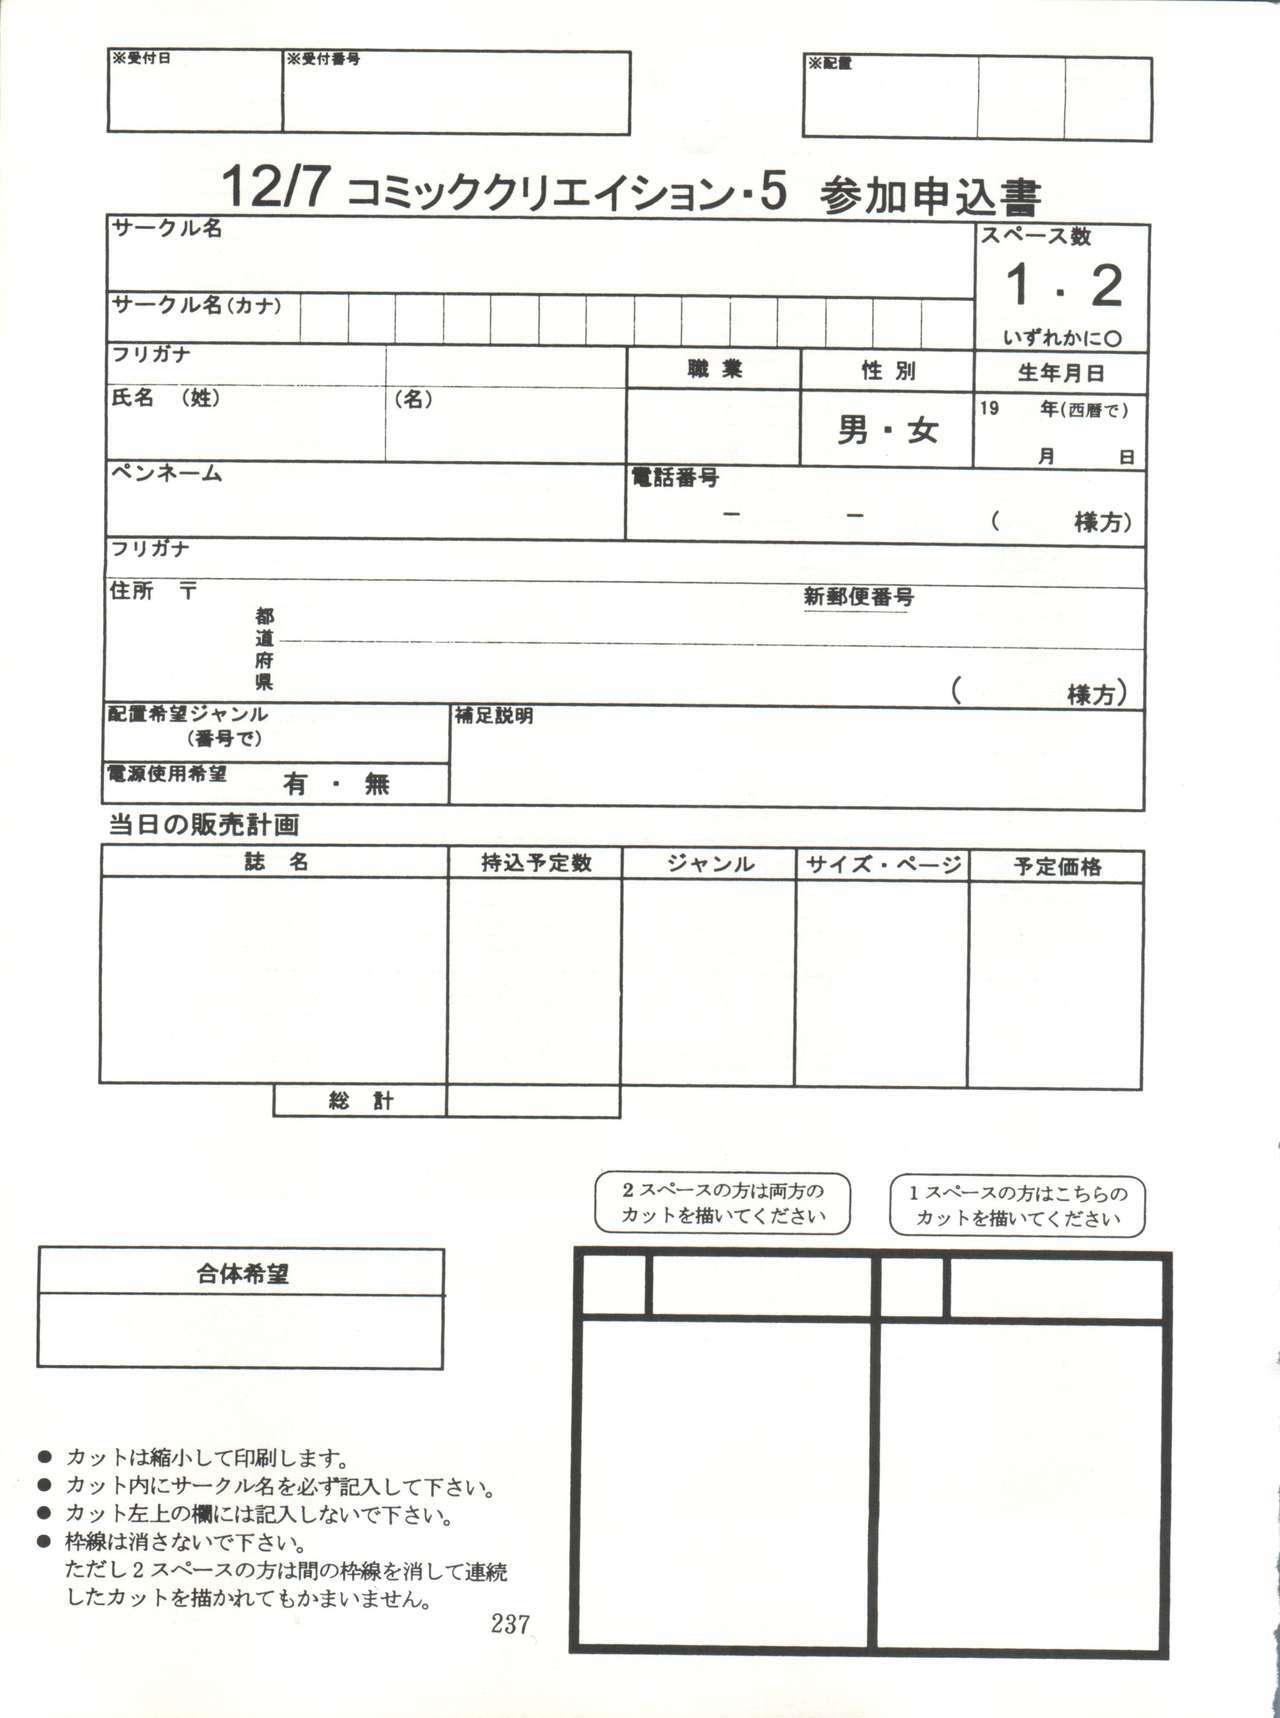 ※受付日
※受付番号
※配置
12/7 コミッククリエイション・5 参加申込書
サークル名
スペース数
1・2
いずれかに○
サークル名(カナ)
フリガナ
職業
性別
生年月日
氏名 (姓)
(名)
男・女
19 年(西暦で)
月 日
ペンネーム
電話番号
－ － ( 様方)
フリガナ
住所 〒
新郵便番号
都
道
府
県
( 様方)
配置希望ジャンル
(番号で)
補足説明
電源使用希望 有・無
当日の販売計画
誌名 持込予定数 ジャンル サイズ・ページ 予定価格
総計
2スペースの方は両方の
カットを描いてください
1スペースの方はこちらの
カットを描いてください
合体希望
● カットは縮小して印刷します。
● カット内にサークル名を必ず記入して下さい。
● カット左上の欄には記入しないで下さい。
● 枠線は消さないで下さい。
ただし2スペースの方は間の枠線を消して連続
したカットを描かれてもかまいません。
237